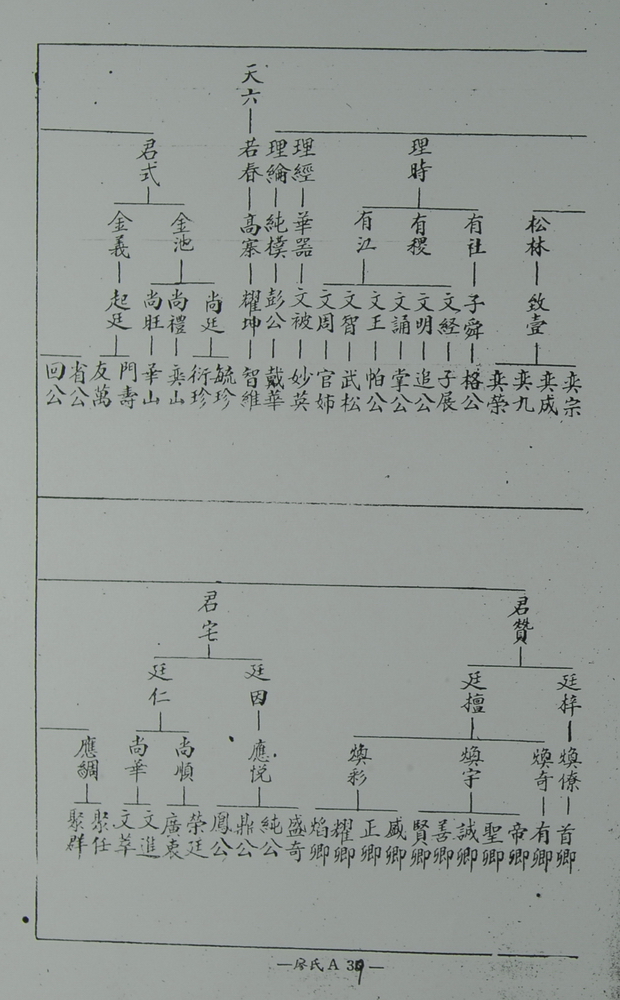 松林
致壹
奕宗
奕成
奕九
奕榮
理時
有社
有稷
有江
子舜
文経
文明
文誦
文王
文智
文周
格公
子展
追公
掌公
帕公
武松
官姊
理經
華器
文被
妙英
理綸
純樸
彭公
戴華
天六
若春
高寨
耀坤
智維
君式
金池
金義
尚廷
尚禮
尚旺
起廷
毓珍
衍珍
奕山
華山
門壽
友萬
省公
回公
君贊
廷梓
廷擅
煥僚
煥奇
煥宇
煥彩
首卿
有卿
帝卿
聖卿
誠卿
善卿
賢卿
威卿
正卿
耀卿
焰卿
君宅
廷因
廷仁
應悅
尚順
尚華
應綢
盛奇
純公
鼎公
鳳公
榮廷
廣衷
文進
文萃
聚任
聚群
—廖氏A 39—